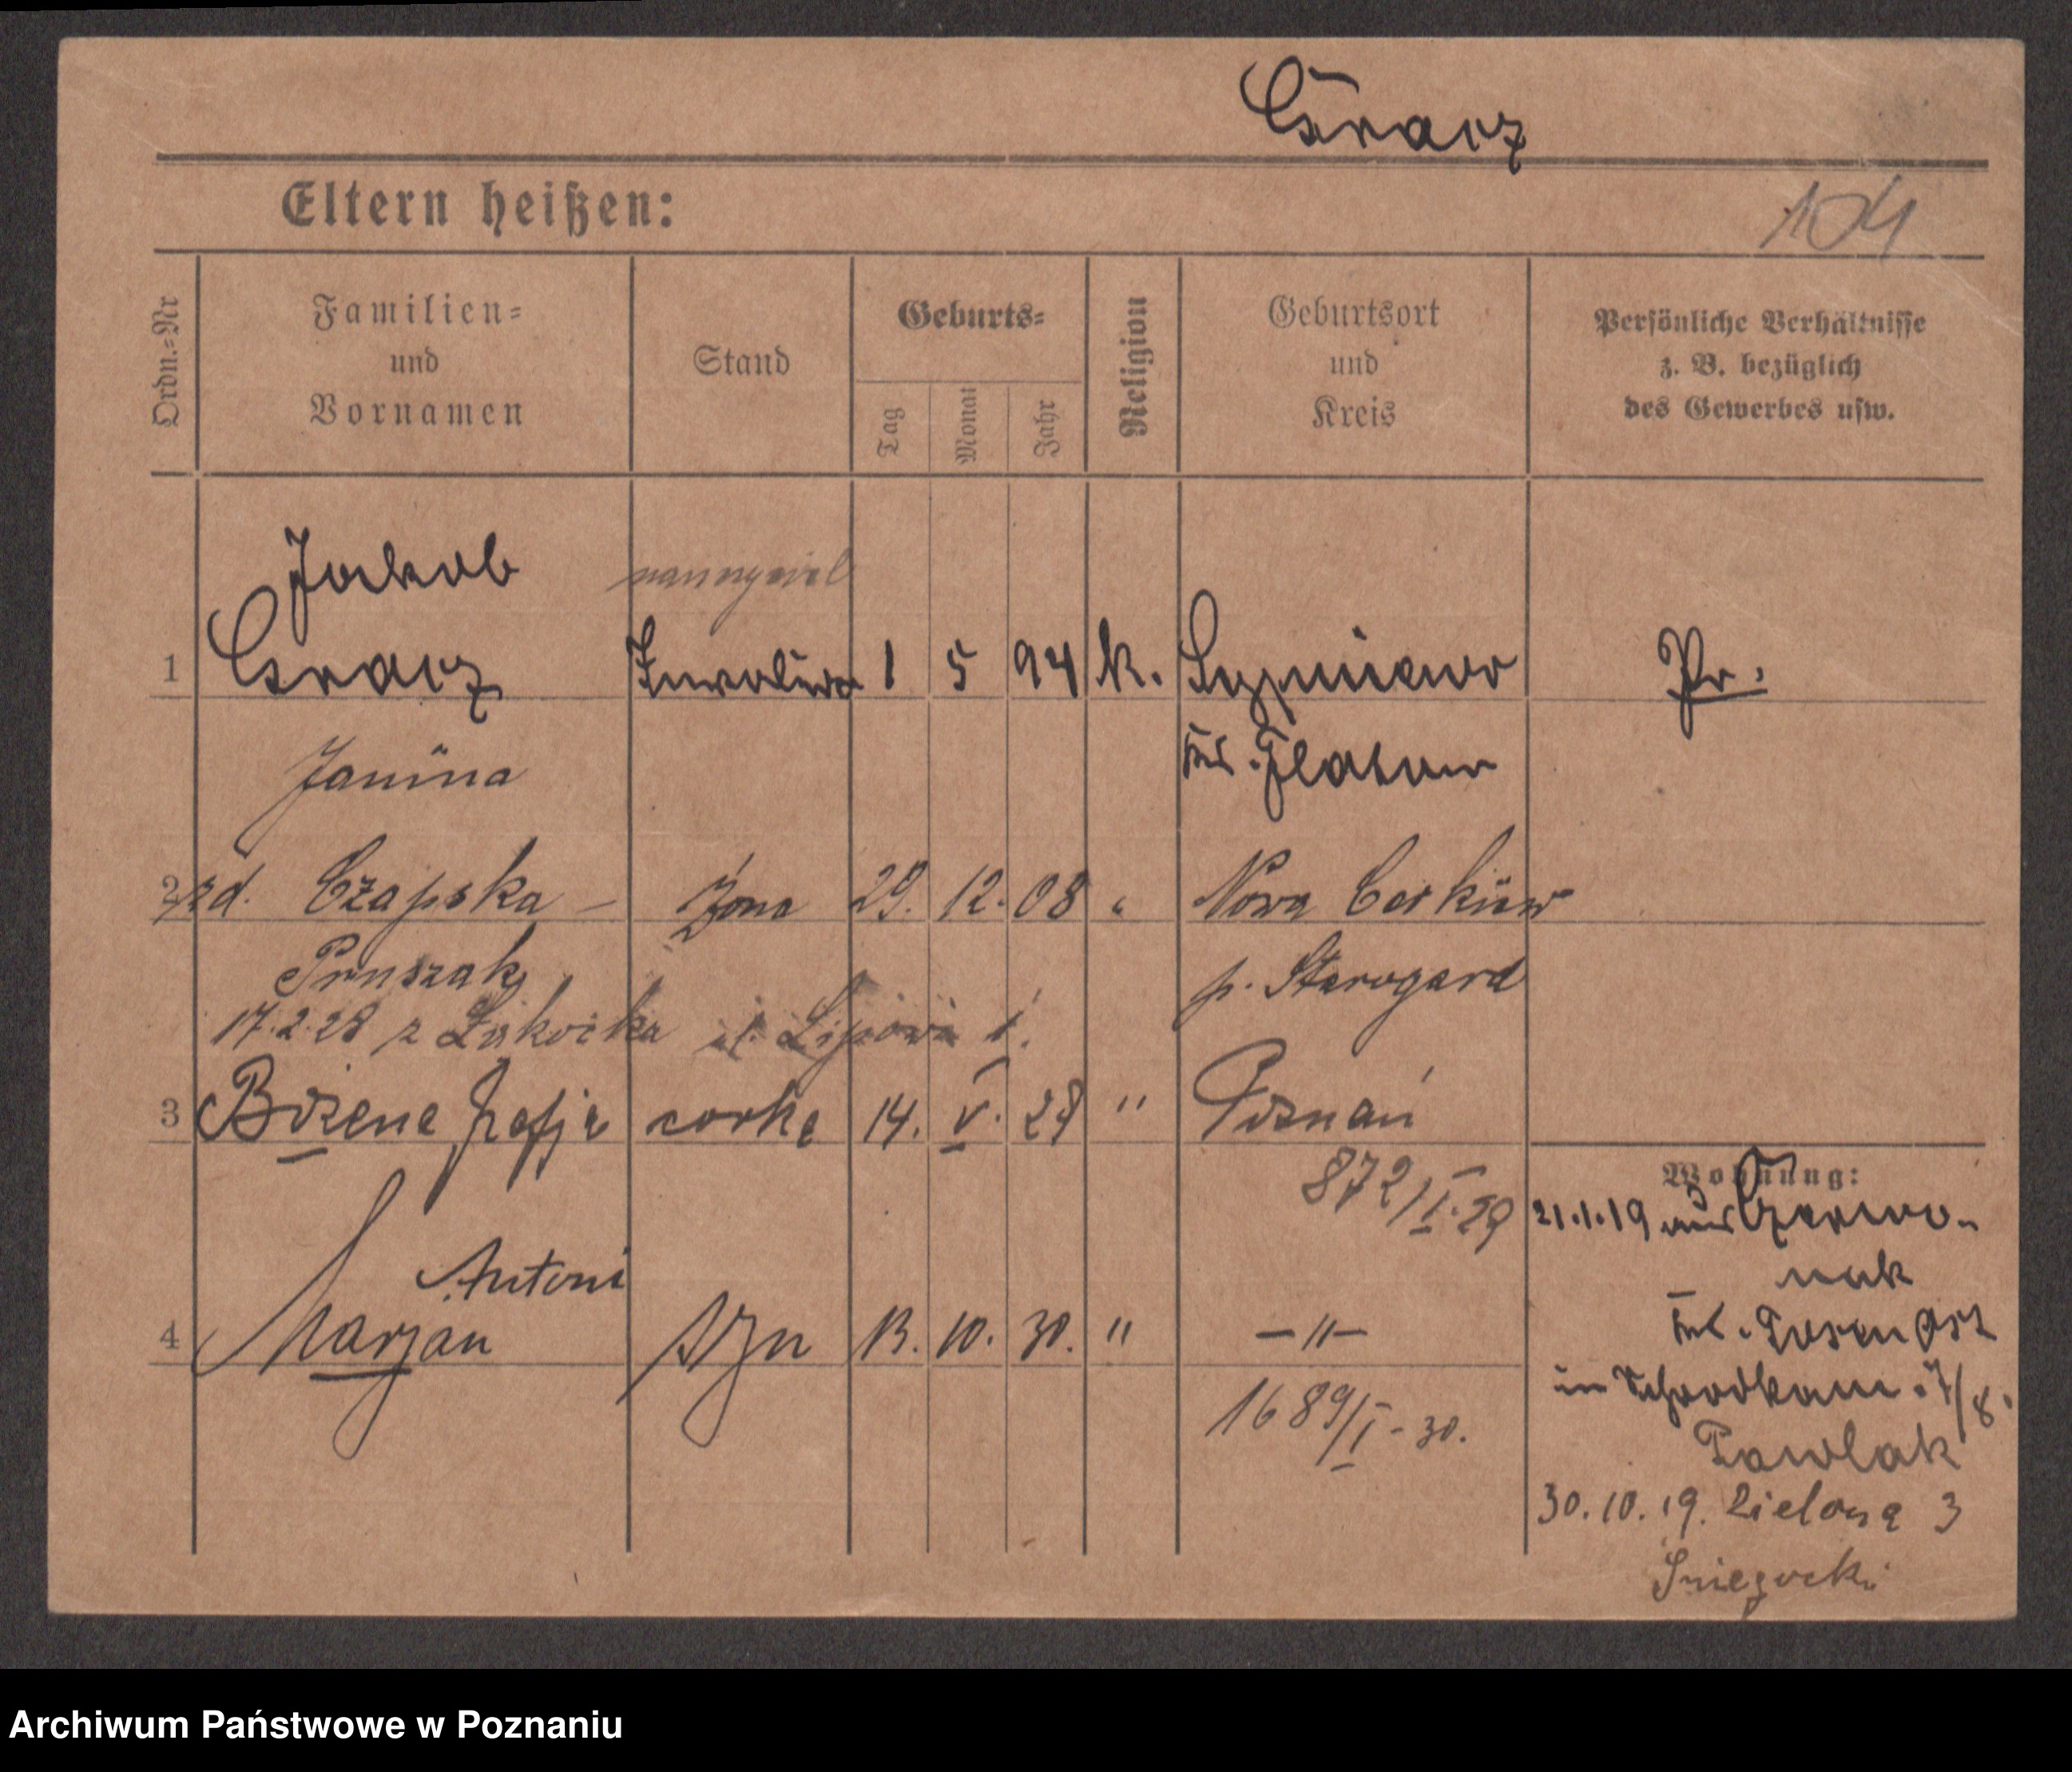 Gracz
Eltern heißen:
104
Ordn.=Nr
Familien=
und
Vornamen
Stand
Geburts=
Tag
Monat
Jahr
Religion
Geburtsort
und
Kreis
Persönliche Verhältnisse
z. B. bezüglich
des Gewerbes usw.
Jakob
1 Gracz Invalide 1 5 94 k. Sypniewo Pr.
Kr. Flatow
Janina
2 zd. Czapska – żona 29. 12. 08 " Nowa Cerkiew
Pruszak p. Starogard
17.2.28 z ul. Lipowa 1.
3 Bożena Zofja córka 14. V. 29 " Poznań
872/I.29
Wohnung:
21.1.19 aus Czerwo-
nak
Kr. Posen Ost
in Schrodkam. 7/8.
Pawlak
Antoni
4 Marjan syn 13. 10. 30. " —"—
1689/I-30.
30.10.19. Zielona 3
Śniegocki
Archiwum Państwowe w Poznaniu